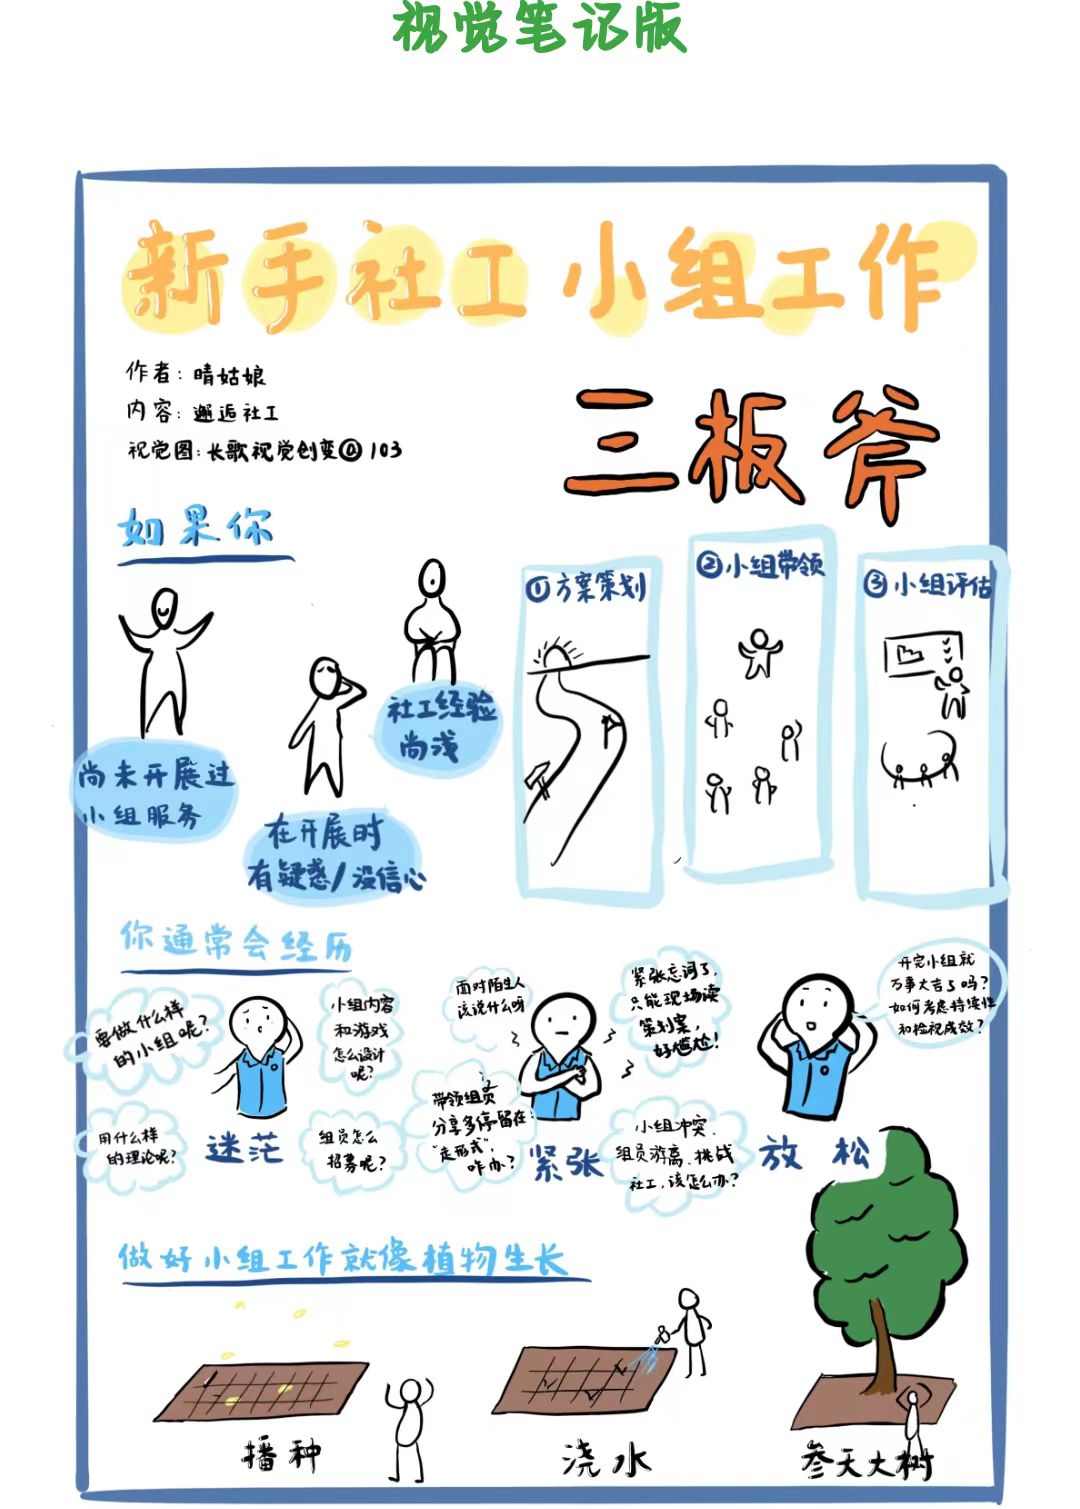 视觉笔记版
新手社工小组工作
三板斧
作者：晴姑娘
内容：邂逅社工
视觉图：长歌视觉创变@103
如果你
尚未开展过
小组服务
在开展时
有疑惑/没信心
社工经验
尚浅
①方案策划
②小组带领
③小组评估
你通常会经历
要做什么样
的小组呢？
小组内容
和游戏
怎么设计
呢？
用什么样
的理论呢？
迷茫
组员怎么
招募呢？
面对陌生人
该说什么呀
紧张忘词了，
只能现场读
策划案，
好尴尬！
带领组员
分享多停留在：
“走形式”，
咋办？
紧张
小组冲突、
组员游离、挑战
社工，该怎么办？
开完小组就
万事大吉了吗？
如何考虑持续性
和检视成效？
放松
做好小组工作就像植物生长
播种
浇水
参天大树